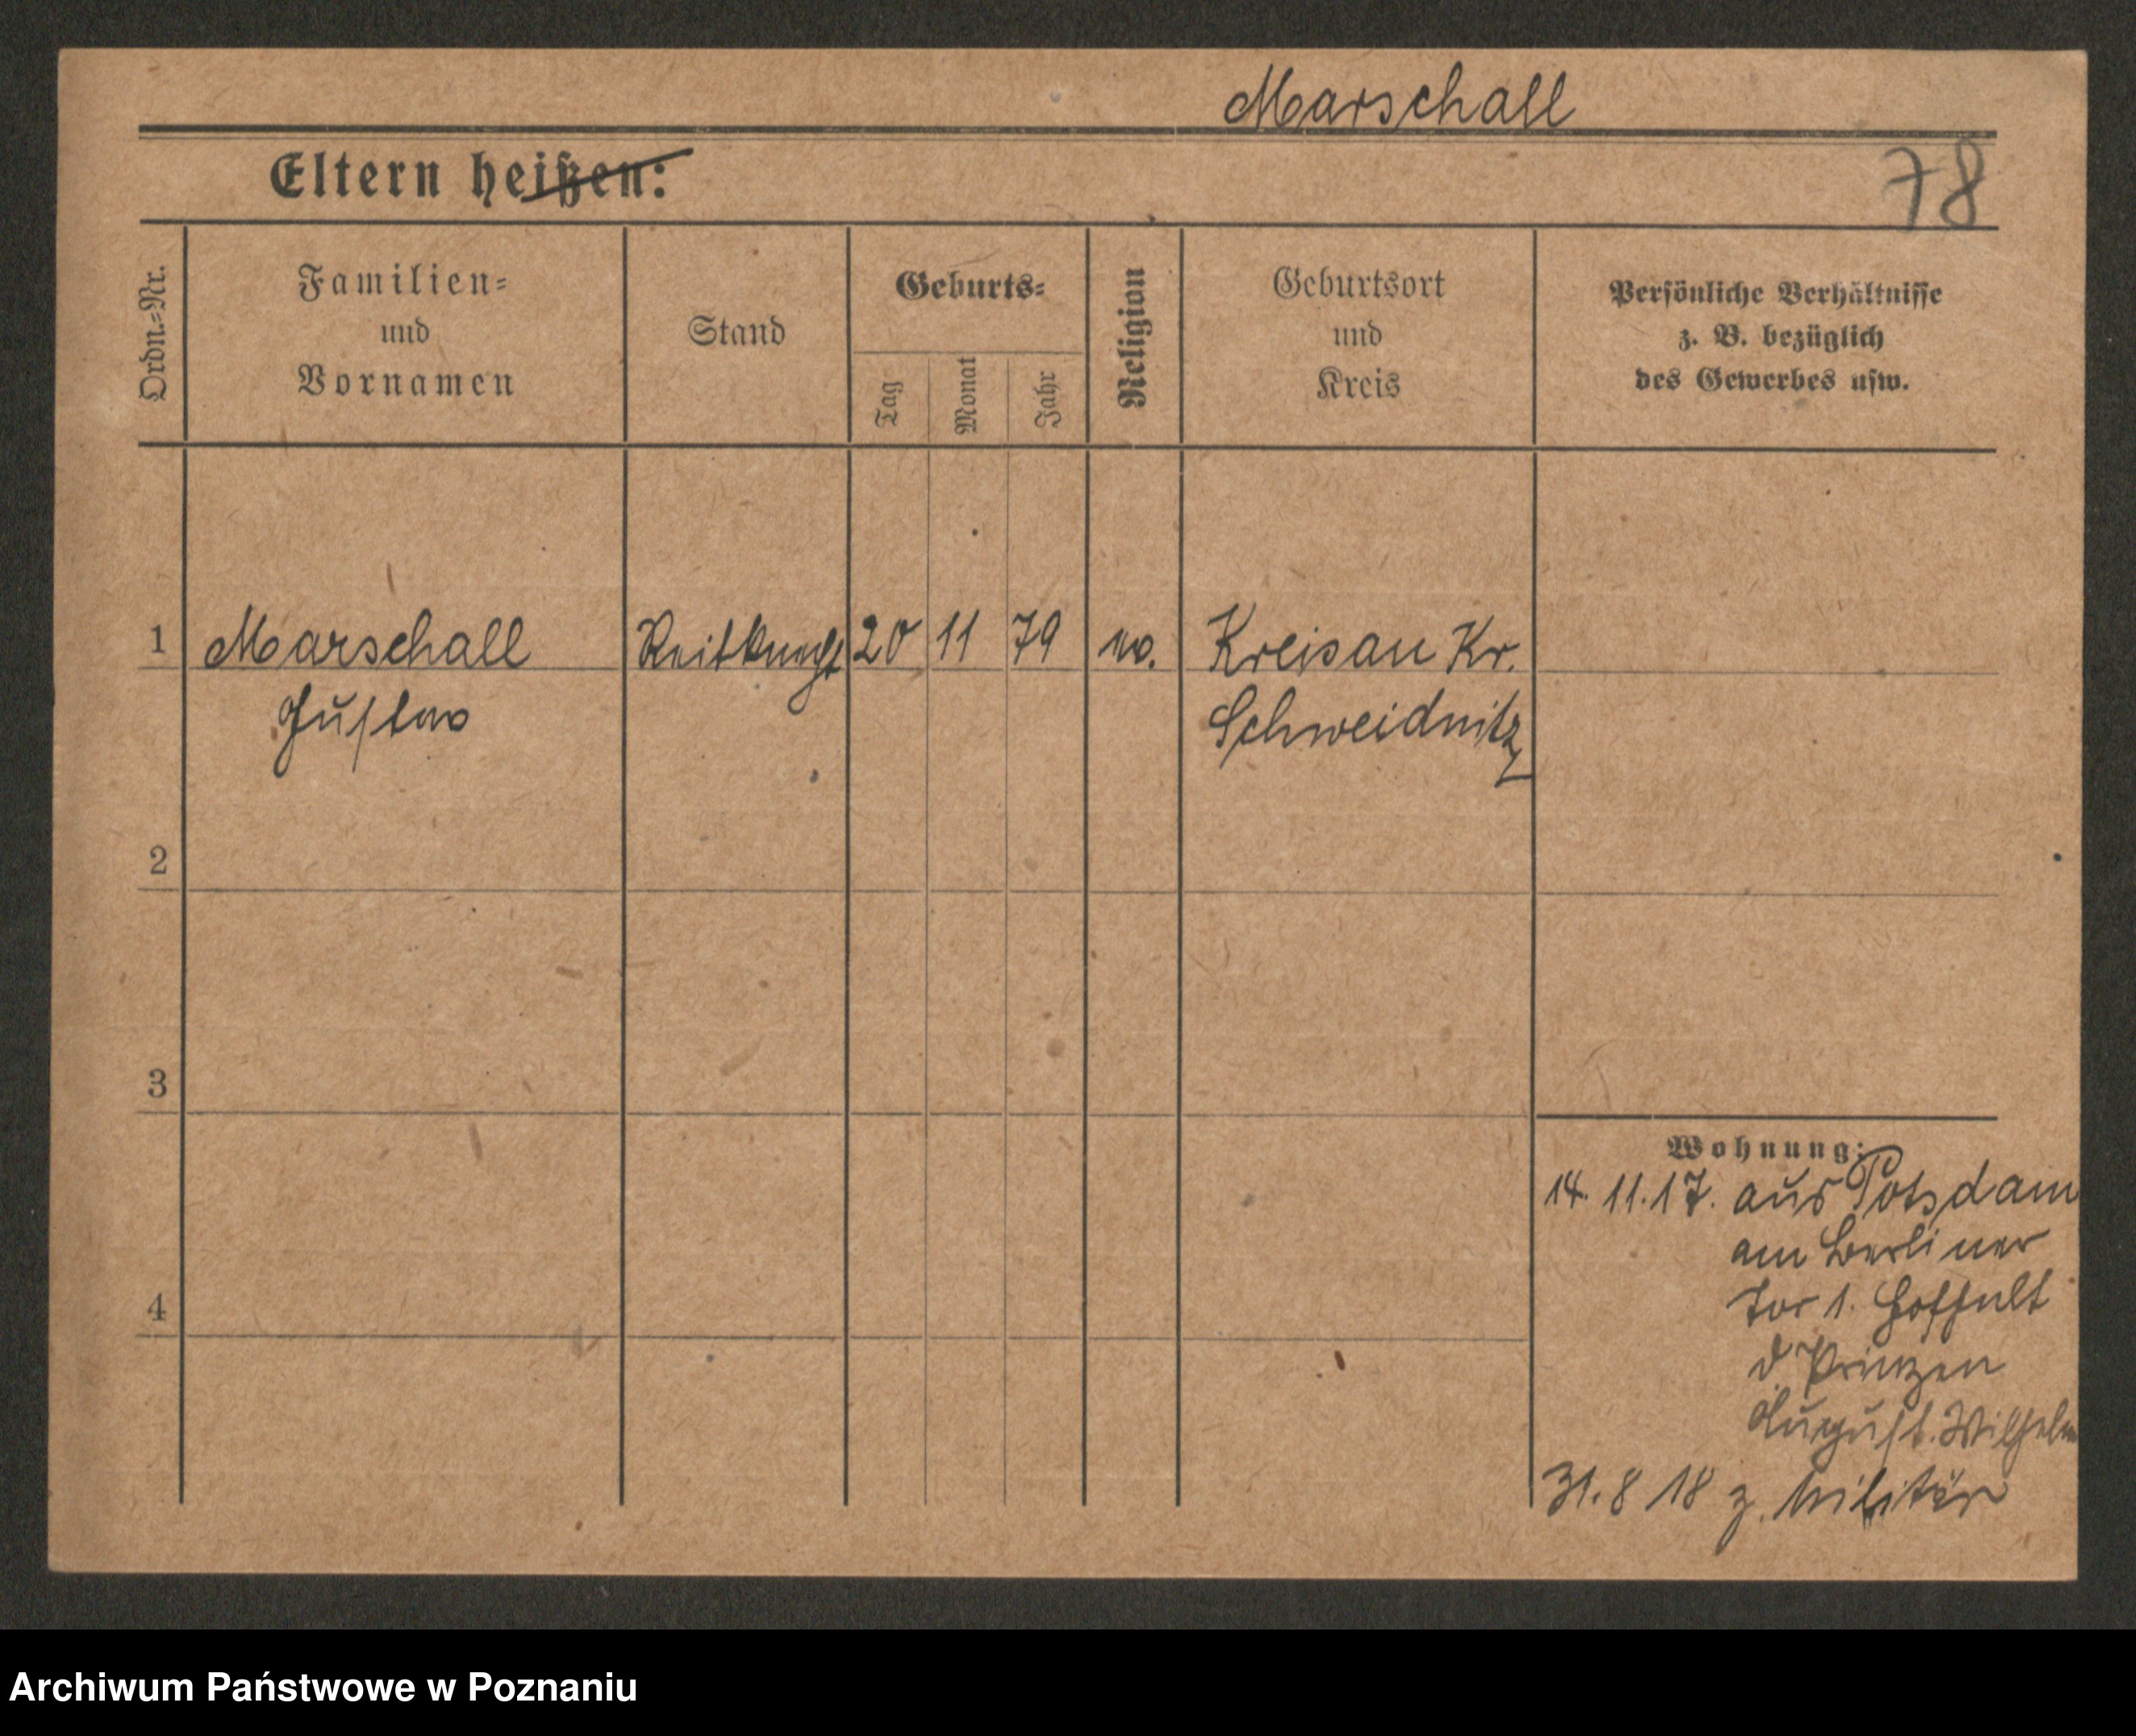 Marschall
Eltern heißen:
78
Ordn.=Nr.
Familien=
und
Vornamen
Stand
Geburts=
Tag
Monat
Jahr
Religion
Geburtsort
und
Kreis
Persönliche Verhältnisse
z. B. bezüglich
des Gewerbes usw.
1 Marschall Reitknecht 20 11 79 Kreisau Kr.
Gustav Schweidnitz
2
3
4
Wohnung:
14. 11. 17. aus Potsdam
am Berliner
Tor 1.
d Prinzen
August. Wilhelm
31. 8 18 z. Militär
Archiwum Państwowe w Poznaniu